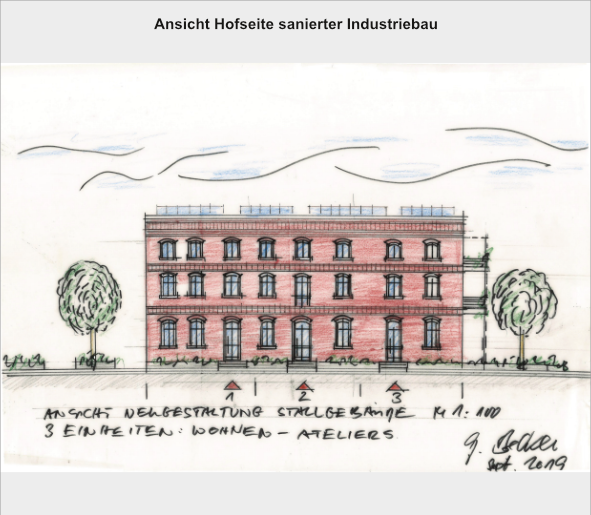 Ansicht Hofseite sanierter Industriebau
1 2 3
ANSICHT NEUGESTALTUNG STALLGEBÄUDE M 1:100
3 EINHEITEN: WOHNEN - ATELIERS
G. Becker
Sept. 2019